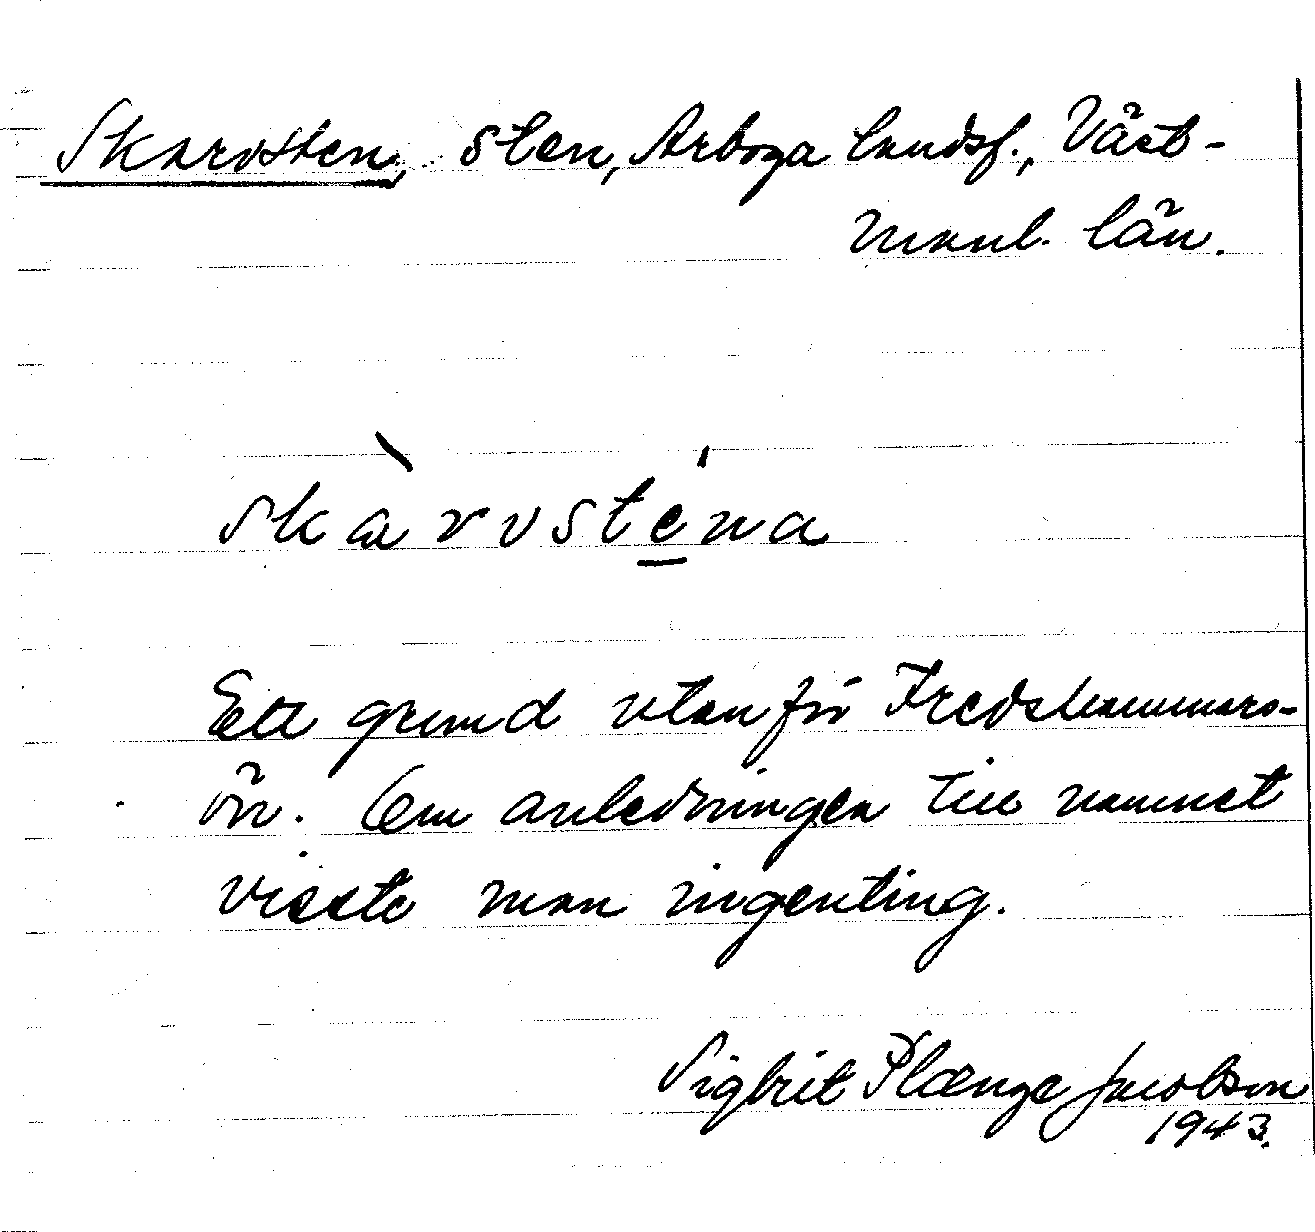 Skarvsten, sten, Arboga landsf., Väst-
manl. län.
skàrvsténa
Ett grund utanför Fredshammars-
ön. Om anledningen till namnet
visste man ingenting.
Sigbrit Plænge Jacobson
1943.